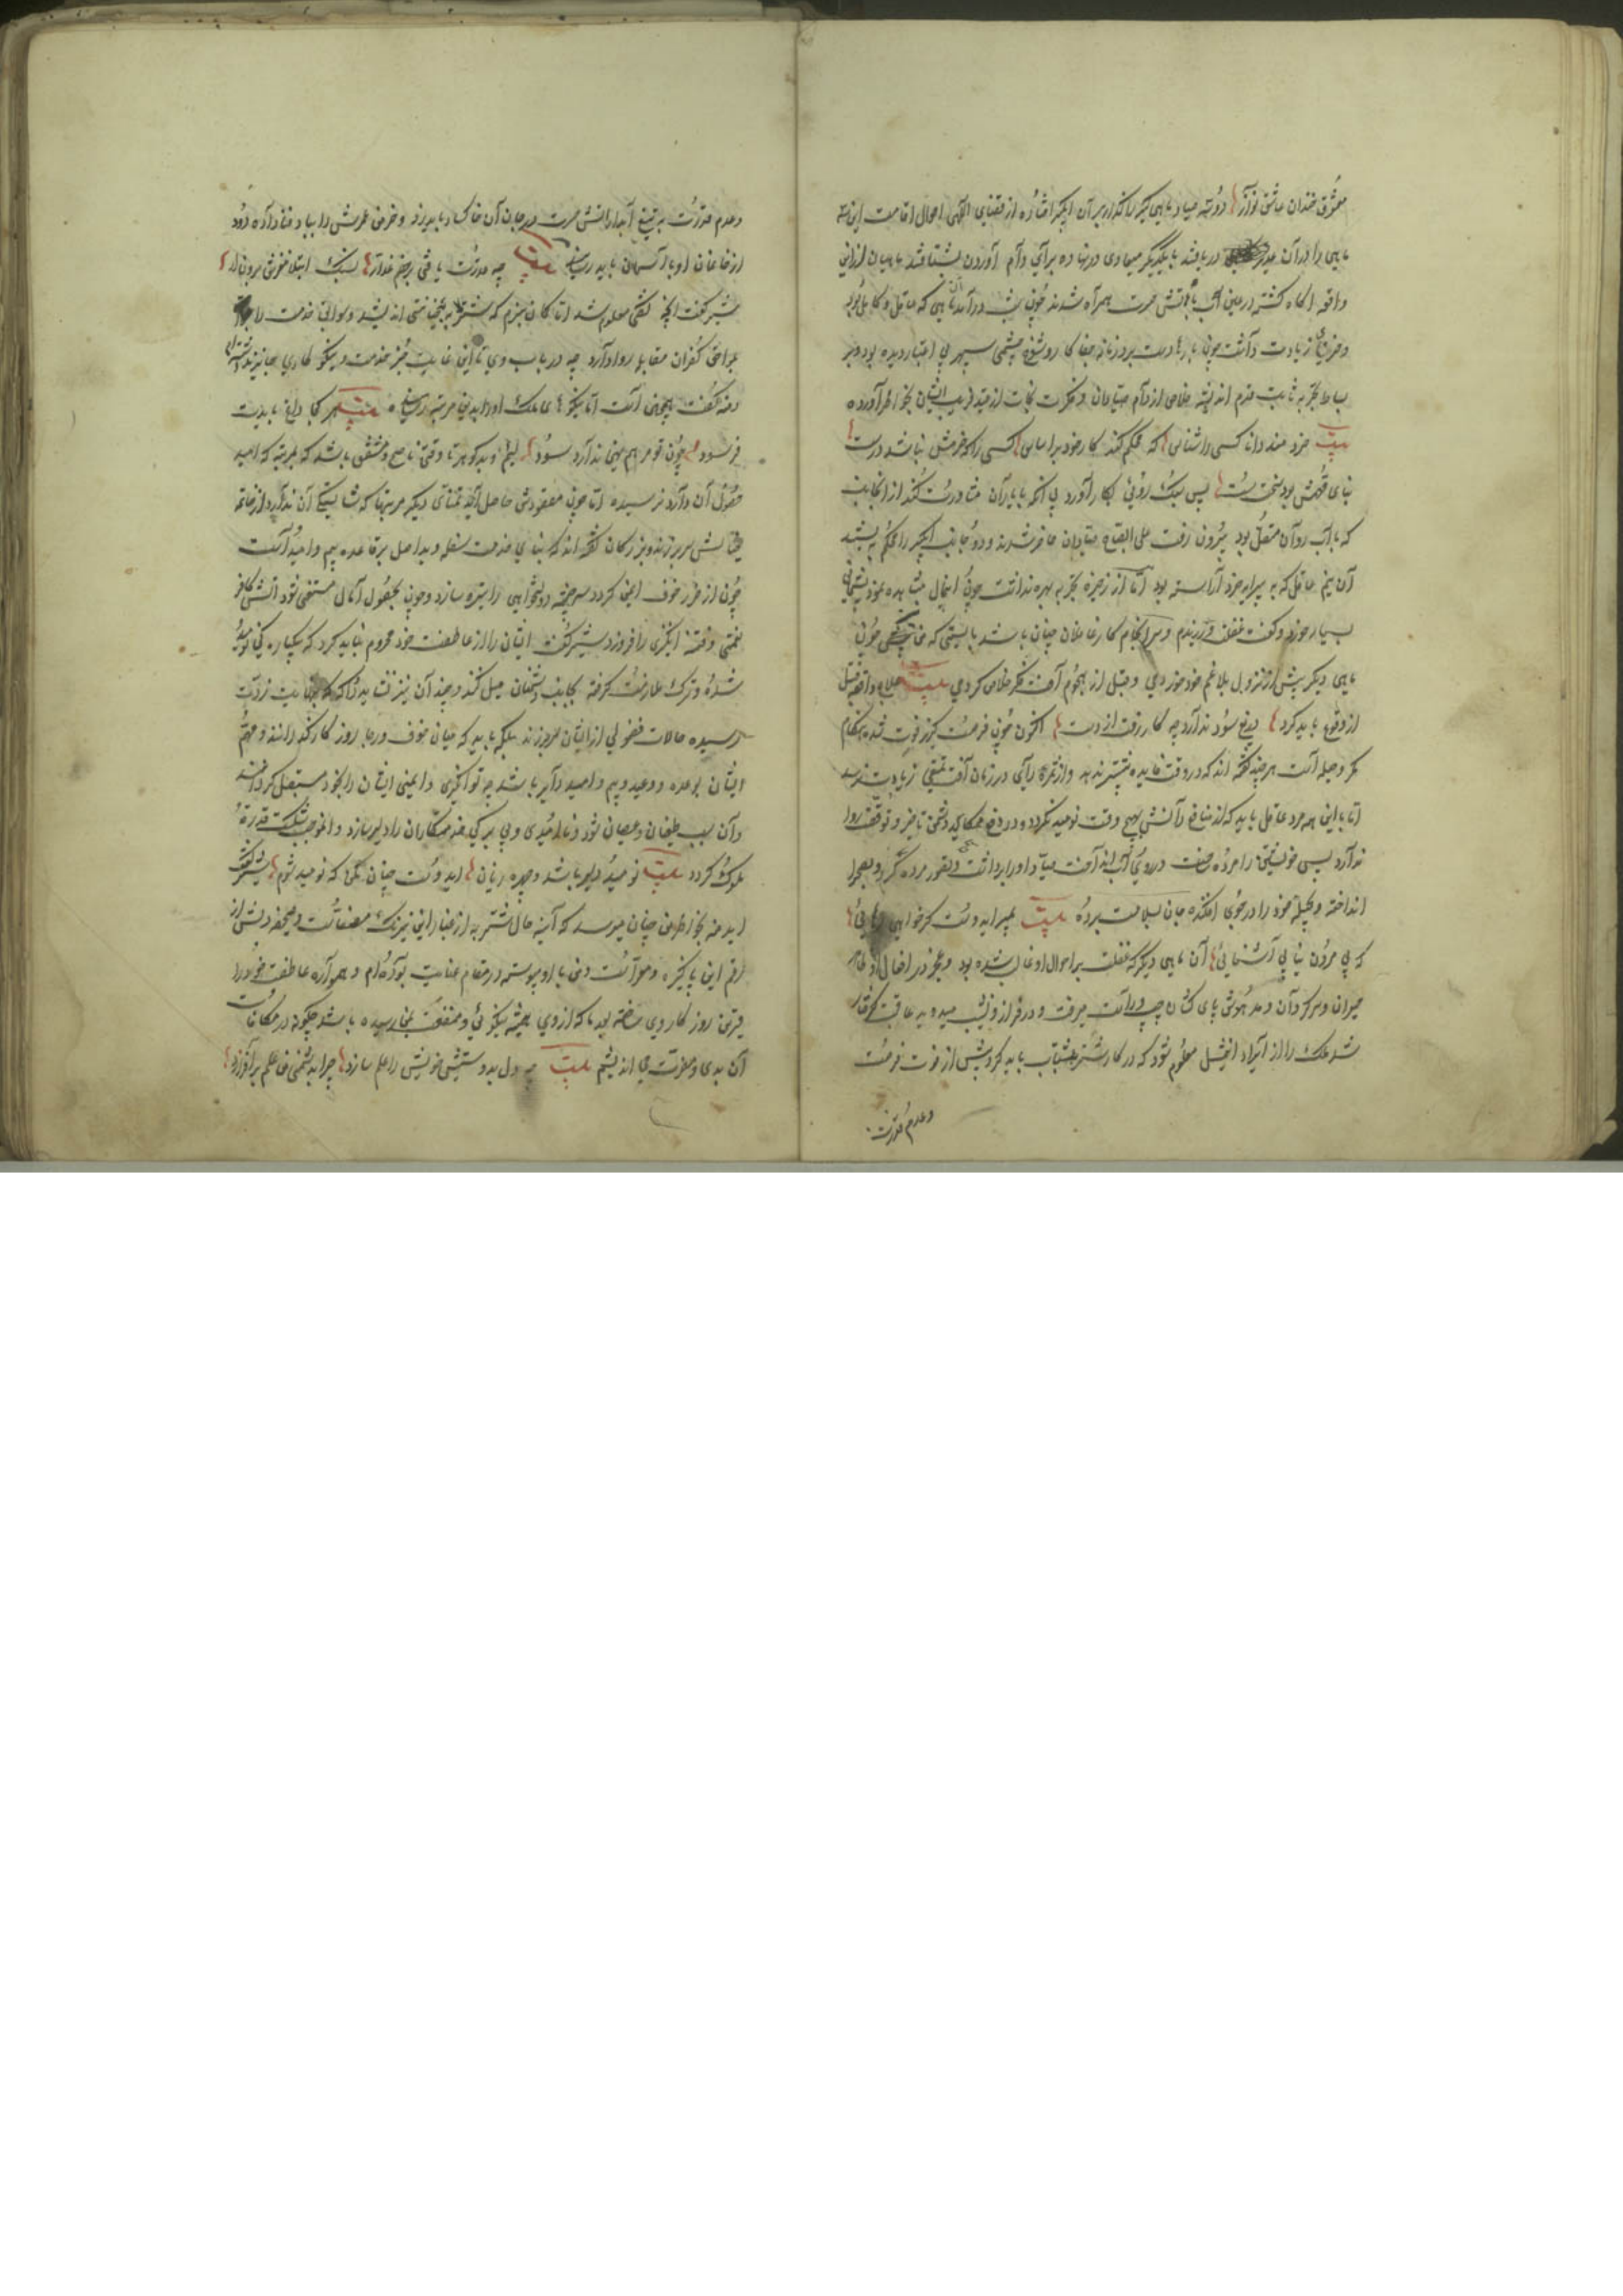 معشوق خندان عاشق نواز دو سه صیاد ماهی گیر را گذر بر آن آبگیر افتاده از قضای الهی احوال اقامت این سه
ماهی را در آن دریافتند با یکدیگر میعادی در نهاده برای دام آوردن بشتافتند ماهیان ازین
واقعه آگاه گشته در عین آب با آتش حسرت همراه شدند چون شب درآمد ماهی که عاقل و کامل بود
و حزم زیادت داشت چون بارها دست برد زمانه جفاکار و شوخ چشمی سپهر بی اعتبار دیده بود و بر
بساط تجربه ثابت قدم اندیشه خلاص از دام صیادان و فکرت نجات از قید فریب ایشان بخاطر آورده
بیت خردمند دانا کسی را شناس که محکم کند کار خود را اساس کسی را که حزمش نباشد درست
بنای فهمش بود سخت سست پس سبک روی بکار آورد بی آنکه با یاران مشاورت کند از آنجانب
که با آب روان متصل بود بیرون رفت علی الصباح صیادان حاضر شدند و دو جانب آبگیر را محکم ببستند
آن نیم عاقل که به پیرایه خرد آراسته بود اما از ذخیره تجربه بهره نداشت چون اینحال مشاهده نمود پشیمانی
بسیار خورد و گفت غفلت ورزیدم و سرانجام کار غافلان چنان باشد بایستی که من چون
ماهی دیگر پیش از نزول بلا غم خود خوردمی و قبل از هجوم آفت فکر خلاص کردمی بیت علاج واقعه قبل
از وقوع باید کرد دریغ سود ندارد چو کار رفت از دست اکنون چون فرصت گریز فوت شده هنگام
مکر و حیله است هر چند گفته اند که در وقت فایده بیشتر ندهد و از ثمره رای در زمان آفت تمتعی زیادت نرسد
اما با این همه مرد عاقل باید که از منافع دانش بهیچ وقت نومید نگردد و در دفع مکاید دشمن تاخیر و توقف روا
ندارد پس خویشتن را مرده ساخت و در روی آب صیاد او را برداشت و بتصور مرده بصحرا
انداخته و بحیله خود را در جوی افکنده جان بسلامت برد بیت بمیر ای دوست گر خواهی رهایی
که بی مردن نیابی آشنایی آن ماهی دیگر که غفلت بر احوال او غالب شده بود و عجز در افعال او ظاهر
حیران و سرگردان و مدهوش پای کشان چپ و راست میرفت و در فراز و نشیب میدوید عاقبت گرفتار
شد ملک را از ایراد این مثل معلوم شود که در کار شنزبه شتاب باید کرد و پیش از فوت فرصت
و عدم قدرت
و عدم قدرت به تیغ آبدار آتش حسرت در جان آن خاکسار باید زد و خرمن عمرش را بباد فنا داده دود
از خانمان او بآسمان باید رسانید بیت چو قدرت یافتی بر خصم غدار بسنگ ابتلا مغزش برون آر
شیر گفت آنچه گفتی معلوم شد اما گمان نبرم که شنزبه خیانتی اندیشد و سوابق خدمت را
بلواحق کفران مقابله روا دارد چه در باب وی تا این غایت جز خدمت و نیکوکاری جایز نداشته ام
دمنه گفت همچنین است اما نیکویی های ملک او را بدین مرتبه رسانید بیت هر کجا داغ بایدت
فرمود چون تو مرهم نهی ندارد سود لئیم و بدگوهر تا وقتی ناصح و مشفق باشد که بمرتبه که امید
حصول آن دارد نرسیده اما چون مقصودش حاصل آید تمنای دیگر مرتبها که شایستگی آن ندارد از خانه
خیالش سر بر زند و بزرگان گفته اند که بنای خدمت سفله و بداصل بر قاعده بیم و امید است
چون از ضرر خوف ایمن گردد سرچشمه دولتخواهی را تیره سازد و چون بحصول آمال مستغنی شود آتش کافر
نعمتی و فتنه انگیزی را فروزد شیر گفت ایشان را از عاطفت خود محروم نباید کرد که یکباره نومید
شده و ترک ملازمت گرفته بجانب دشمنان میل کنند و چندان نیز نشاید داد که بنهایت ثروت
رسیده خیالات فضولی از ایشان سر بر زند بلکه باید که میان خوف و رجا روزگار گذرانند و مهم
ایشان بوعده و وعید و بیم و امید دایر باشد چه توانگری و ایمنی ایشان را بخود مستقل گرداند
و آن سبب طغیان و عصیان شود و ناامیدی و بی برگی خدمتکاران را دلیر سازد و آن موجب شکست قدر
ملوک گردد بیت نومید دلیر باشد و چیره زبان ای دوست چنان مکن که نومید شوم شیر گفت
ای دمنه بخاطر من چنان میرسد که آینه حال شنزبه از غبار این نیرنگ مصفاست و صحیفه دلش از
رقم این پاکیزه و مبراست و من با او پیوسته در مقام عنایت بوده ام و همواره عاطفت خود را
قرین روزگار وی ساخته بود ما که از وی همیشه نیکویی و منفعت بمن رسیده باشد چگونه در مکافات
آن بدی و مضرت می اندیشم بیت چو دل بدوستیش خویش را علم سازد چرا بدشمنی من علم برافرازد